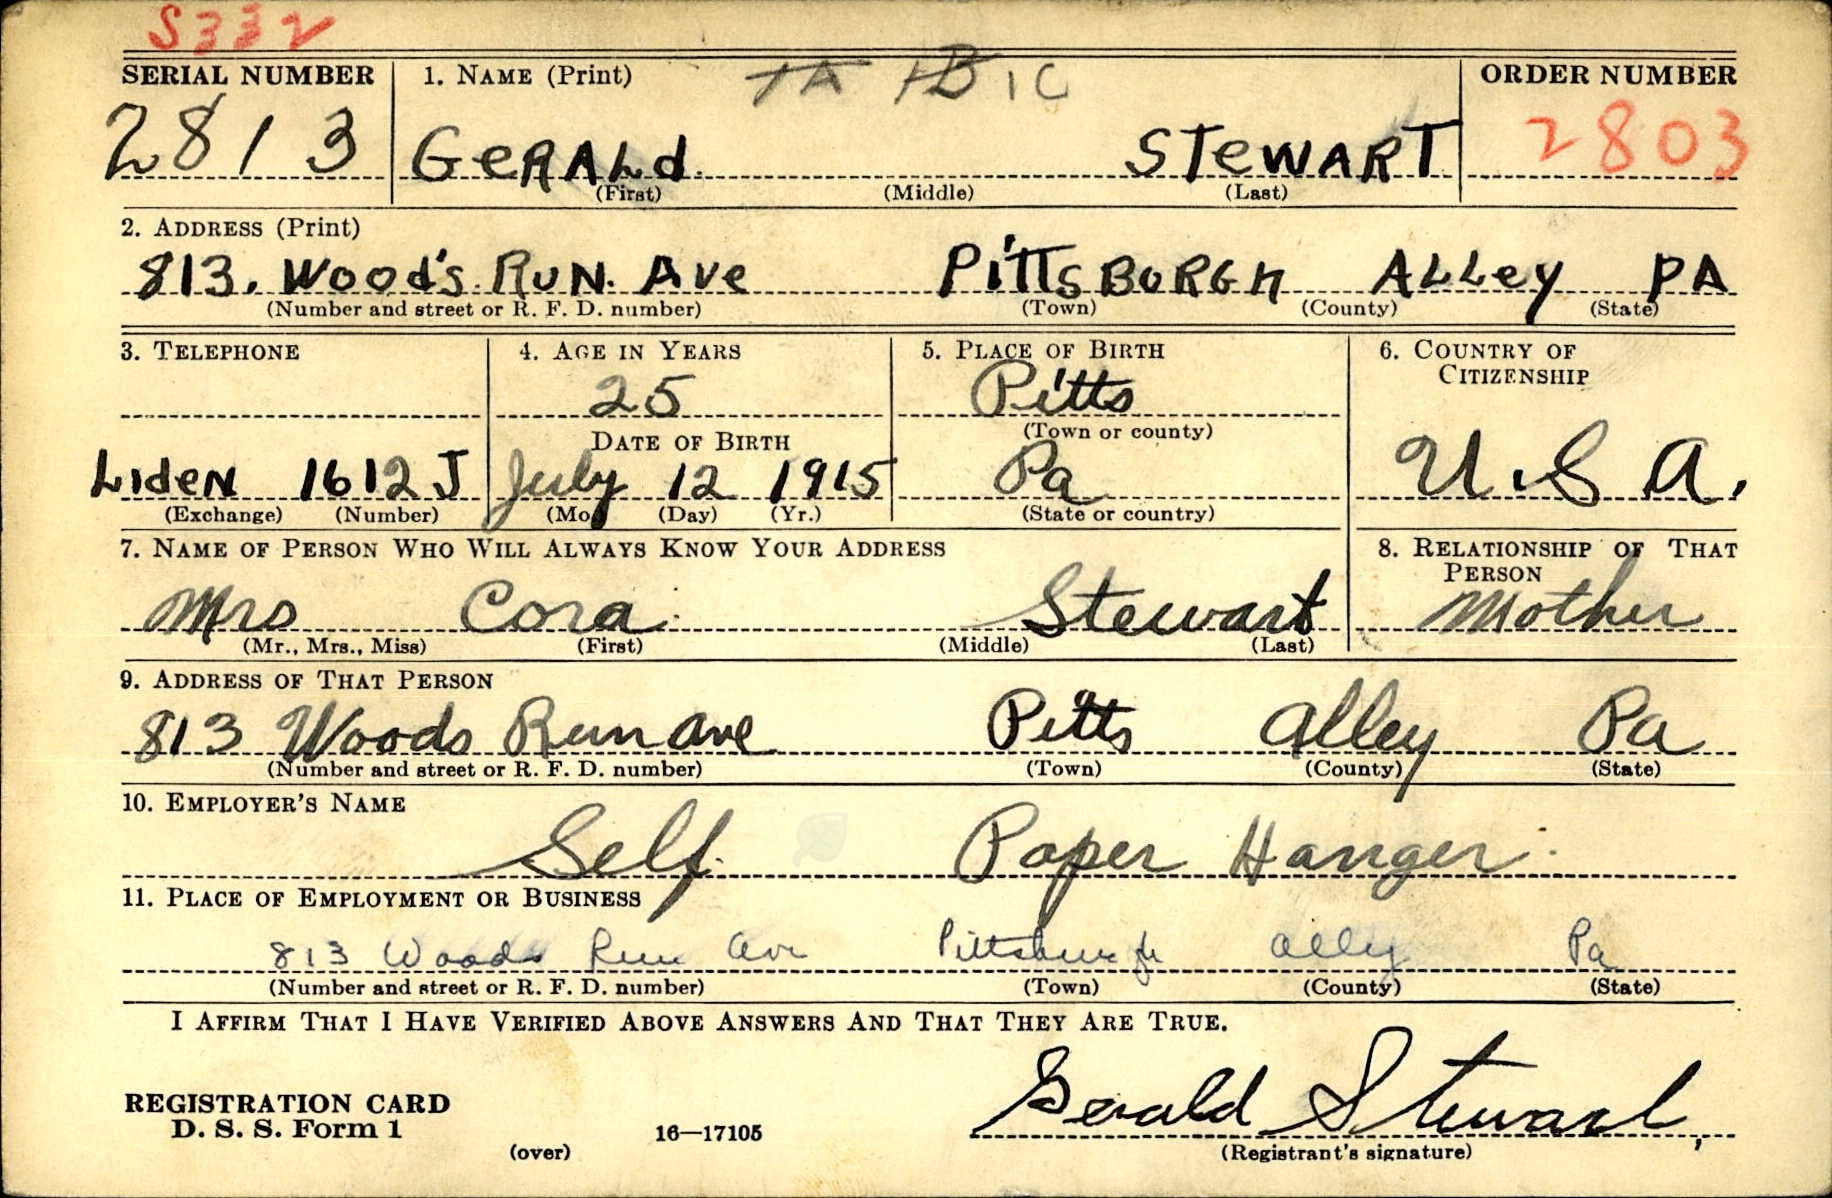 S332
SERIAL NUMBER 1. NAME (Print) 1A 1B 1C ORDER NUMBER
2813 GeRALd STeWART 2803
(First) (Middle) (Last)
2. ADDRESS (Print)
813. Wood's. RuN. Ave PiTTSBURGh ALLey PA
(Number and street or R. F. D. number) (Town) (County) (State)
3. TELEPHONE 4. AGE IN YEARS 5. PLACE OF BIRTH 6. COUNTRY OF CITIZENSHIP
25 Pitts
DATE OF BIRTH (Town or county)
LIdeN 1612 J July 12 1915 Pa U.S A.
(Exchange) (Number) (Mo.) (Day) (Yr.) (State or country)
7. NAME OF PERSON WHO WILL ALWAYS KNOW YOUR ADDRESS 8. RELATIONSHIP OF THAT PERSON
Mrs Cora Stewart Mother
(Mr., Mrs., Miss) (First) (Middle) (Last)
9. ADDRESS OF THAT PERSON
813 Woods Run Ave Pitts Alley Pa
(Number and street or R. F. D. number) (Town) (County) (State)
10. EMPLOYER'S NAME
Self. Paper Hanger.
11. PLACE OF EMPLOYMENT OR BUSINESS
813 Woods Run Ave Pittsburgh Ally Pa
(Number and street or R. F. D. number) (Town) (County) (State)
I AFFIRM THAT I HAVE VERIFIED ABOVE ANSWERS AND THAT THEY ARE TRUE.
REGISTRATION CARD Gerald Stewart,
D. S. S. Form 1 (over) 16—17105 (Registrant's signature)